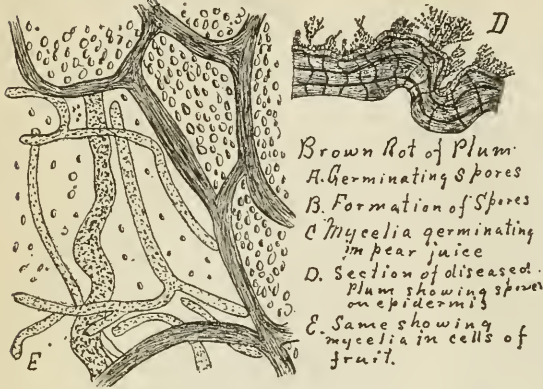 D
Brown Rot of Plum.
A. Germinating Spores
B. Formation of Spores
C Mycelia germinating
in pear juice
D. Section of diseased.
Plum showing spores
on epidermis
E. Same showing
mycelia in cells of
fruit.
E